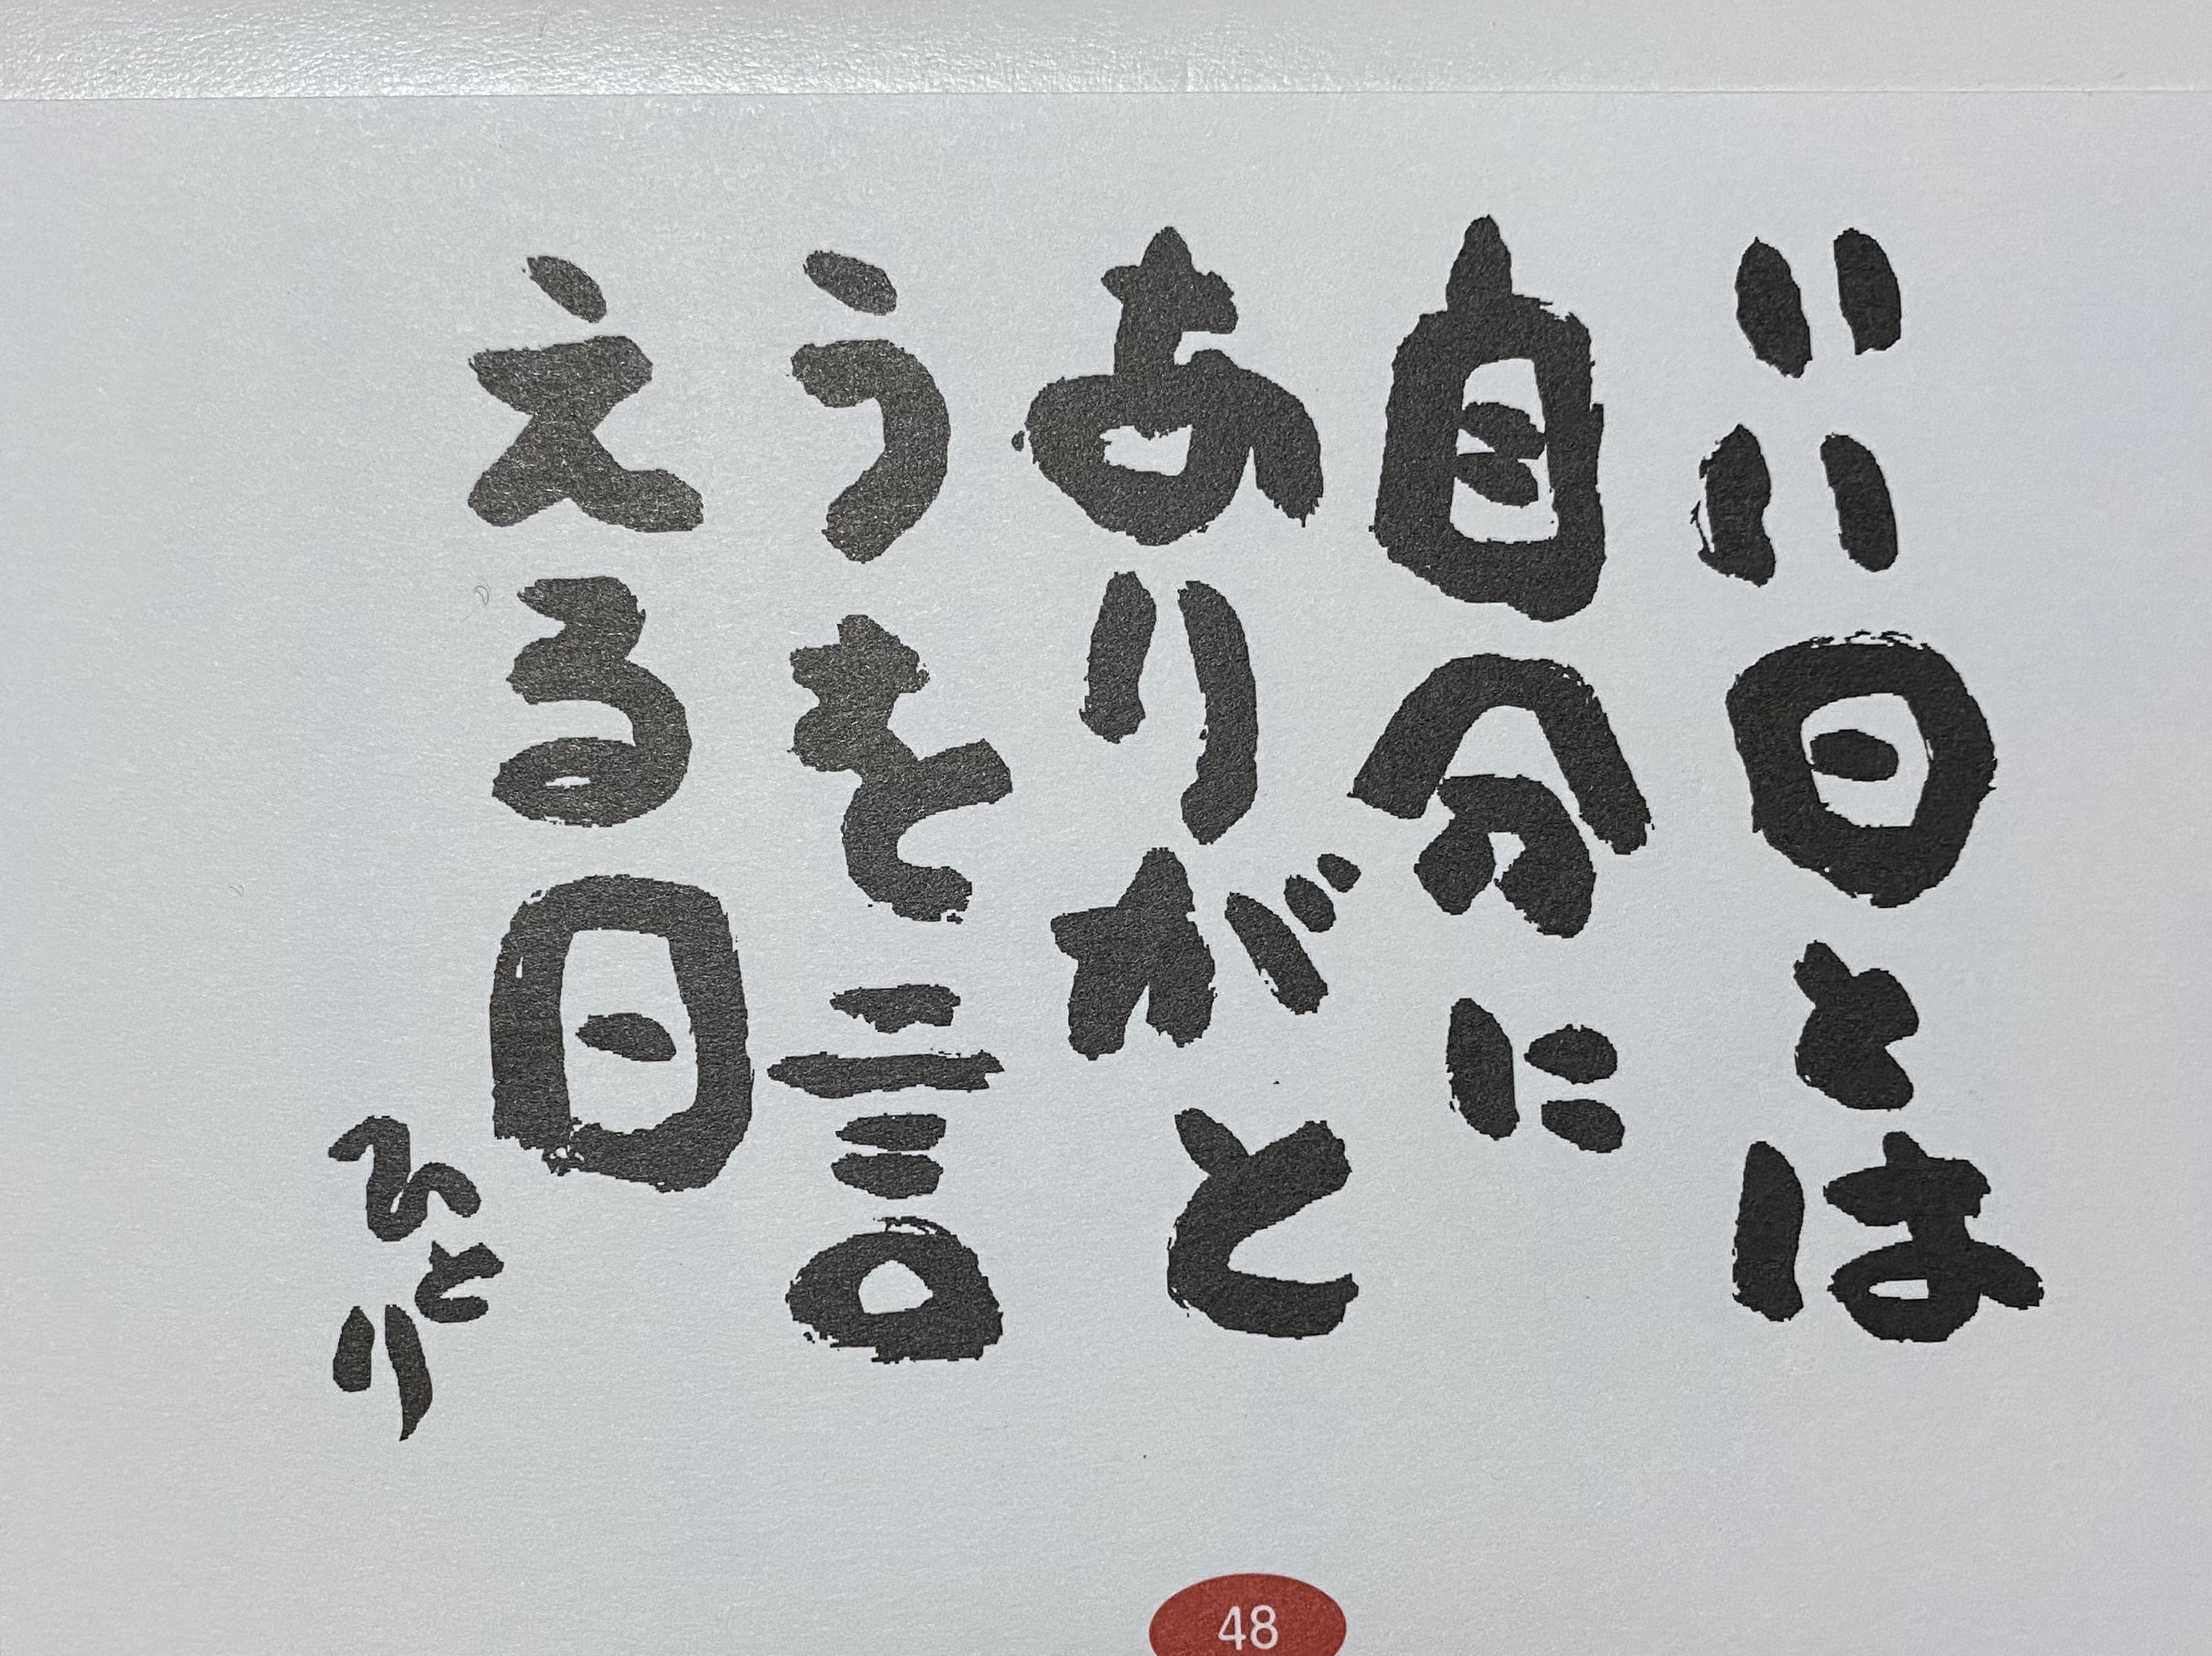 いい日とは
自分に
ありがと
うを言
える日
ひとり
48